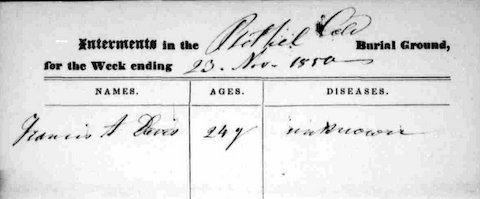 Interments in the Bethel Cold Burial Ground,
for the Week ending 23. Nov. 1850
NAMES. AGES. DISEASES.
Francis A Davis 24 y unknown